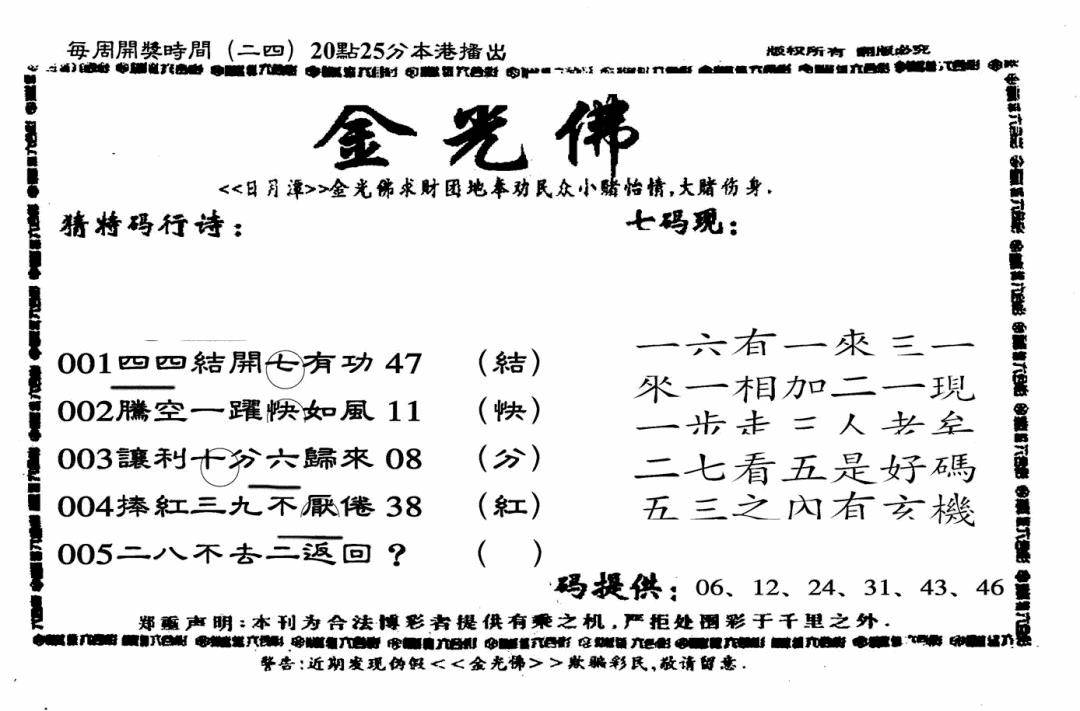 每周開獎時間（二四）20點25分本港播出
版权所有 翻版必究
金光佛
<<日月潭>>金光佛求财园地奉劝民众小赌怡情,大赌伤身.
猜特码行诗：
七码现：
001四四結開七有功 47 （結）
002騰空一躍快如風 11 （快）
003讓利十分六歸來 08 （分）
004捧紅三九不厭倦 38 （紅）
005二八不去二返回 ? （ ）
一六有一來三一
來一相加二一現
一步走三人老矣
二七看五是好碼
五三之內有玄機
码提供：06、12、24、31、43、46
郑重声明:本刊为合法博彩者提供有乘之机,严拒处图彩于千里之外.
警告:近期发现伪假<<金光佛>>欺骗彩民,敬请留意.